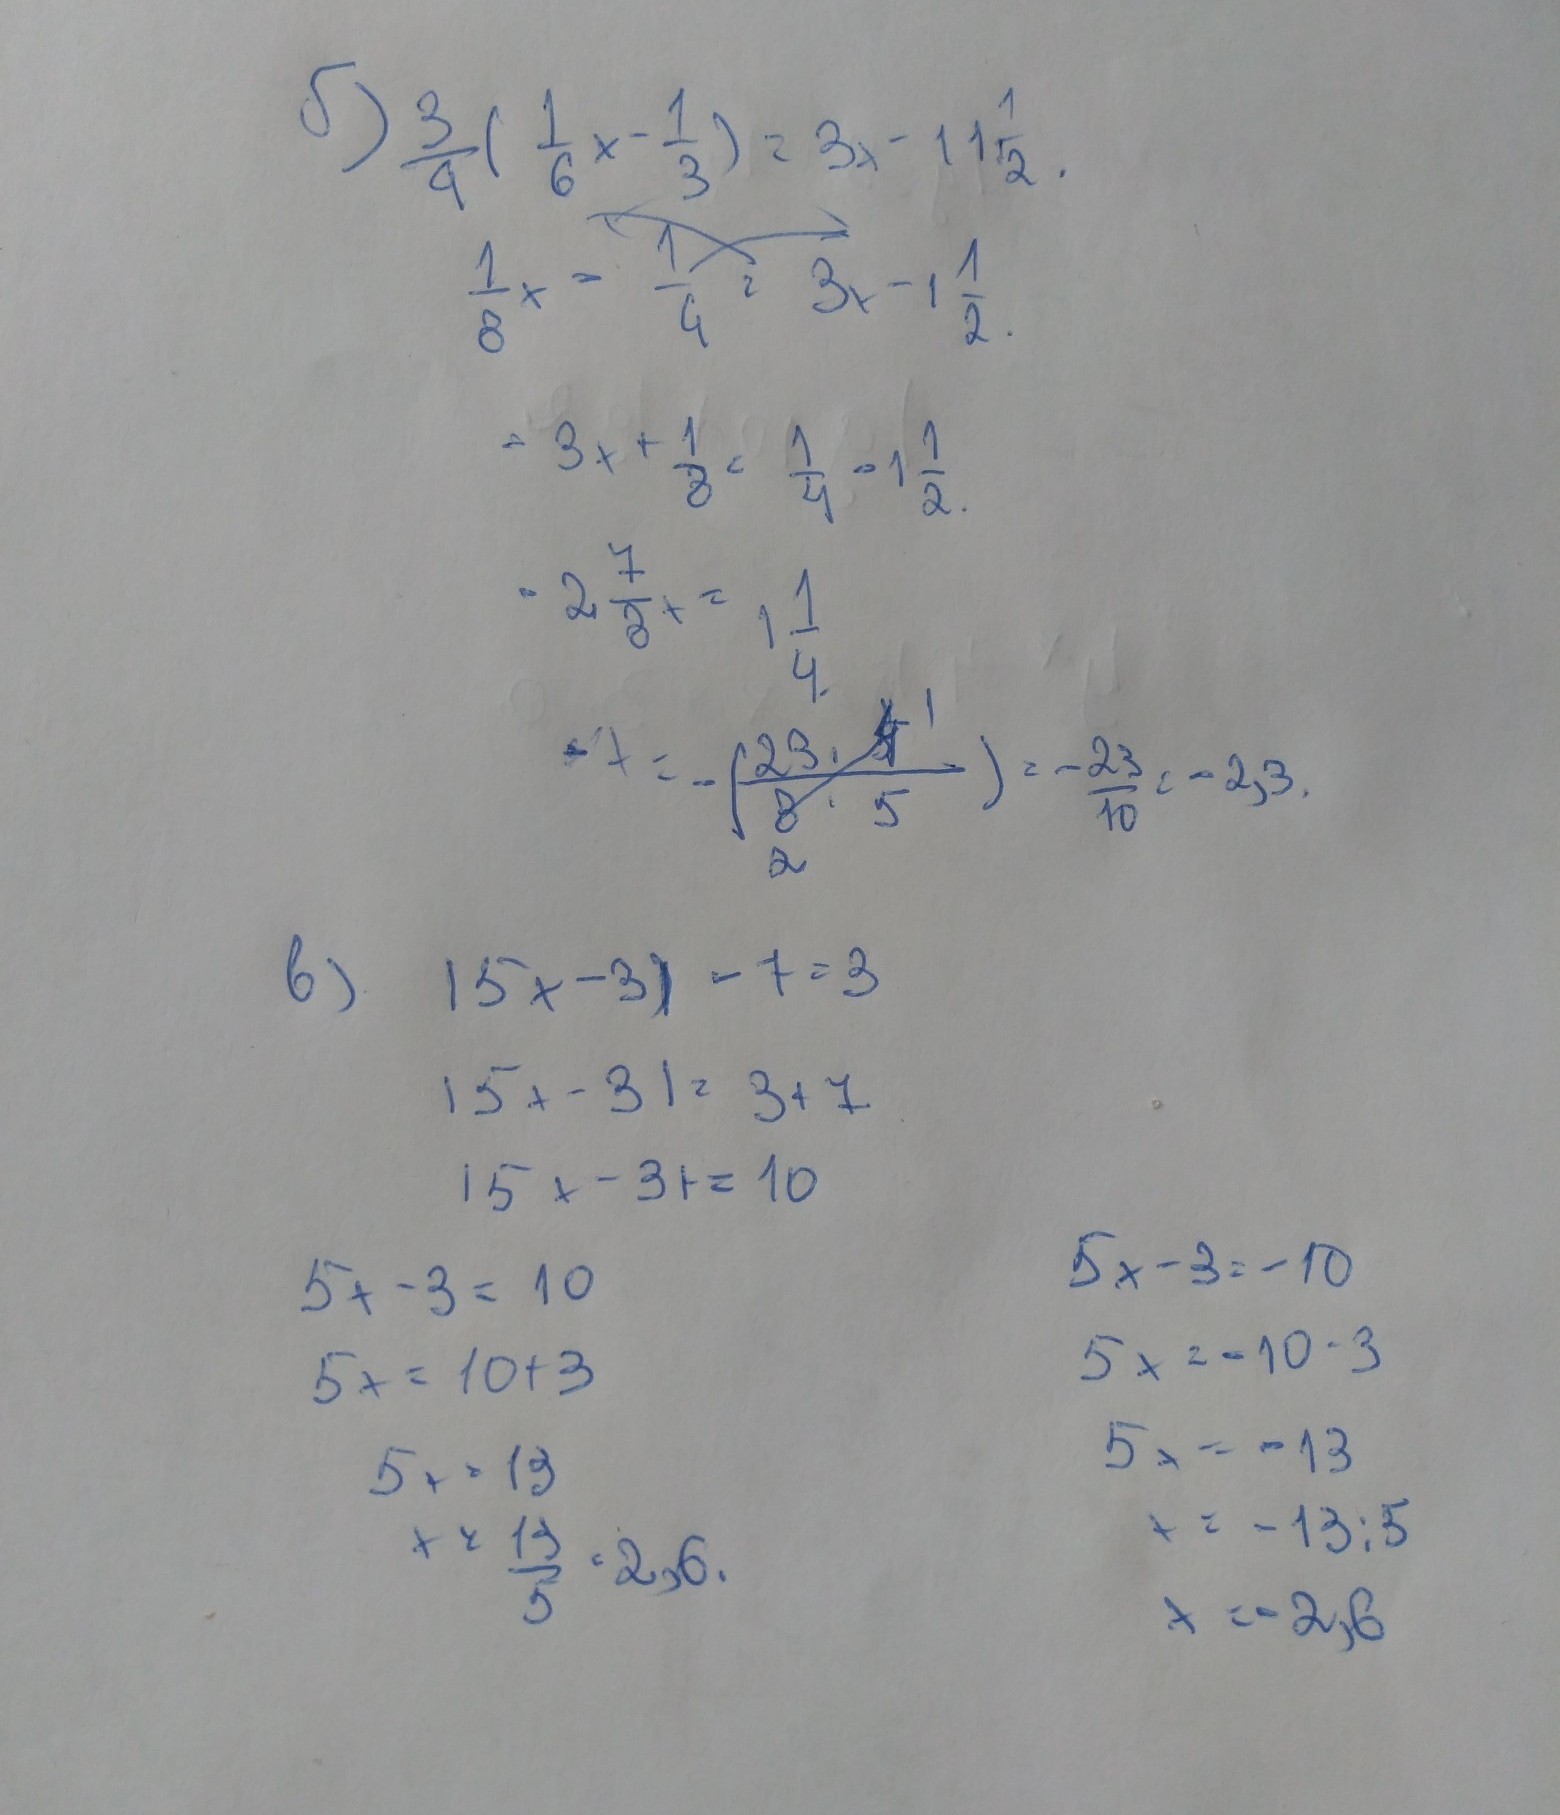 б) 3/4 ( 1/6 x - 1/3 ) = 3x - 11 1/2.
1/8 x - 1/4 = 3x - 1 1/2.
- 3x + 1/8 = 1/4 - 1 1/2.
- 2 7/8 x = 1 1/4
x = - ( 23 · 4 1 / 8 · 5 ) = - 23/10 = - 2,3.
2
в) |5x - 3| - 7 = 3
|5x - 3| = 3 + 7
|5x - 3| = 10
5x - 3 = 10
5x = 10 + 3
5x = 13
x = 13/5 = 2,6.
5x - 3 = - 10
5x = - 10 - 3
5x = - 13
x = - 13 : 5
x = - 2,6